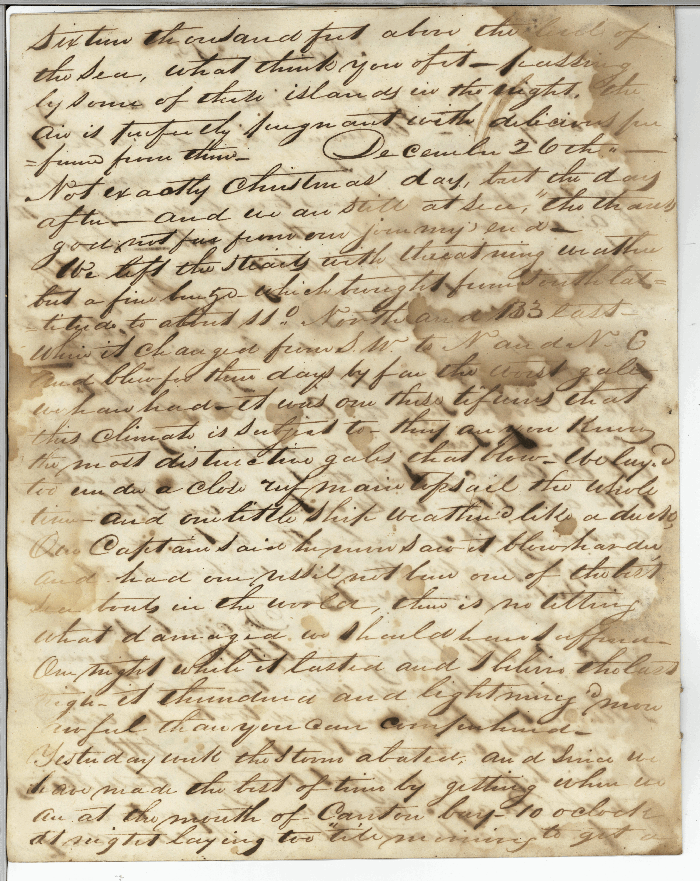 sixteen thousand feet above the level of
the Sea, what think you of it - passing
by some of these islands in the night, the
air is perfectly pungnant with delicious per
=fume from them - December 26th "
Not exactly Christmas day, but the day
after - and we are still at sea, tho thank
god not far from our journey's end -
We left the Straits with threatning weather
but a fine breeze which brought from South lat=
=titude to about 11° North and 113 East -
When it changed from S.W. to N and N. E
and blew for three days by far the worst gale
we have had - it was one those tifuns that
this climate is subject to they are you know
the most distructive gales that blow - We lay'd
too under a close reef main topsail the whole
time - and our little ship weather'd like a duck,
Our Captain said he never saw it blow harder
and had our vessel not been one of the best
sea boats in the world, there is no telling
what damaged we should have suffered
One night while it lasted and I believe the last
it thundred and lightning'd more
awful than you can comprehend -
Yesterday week the storm abated, and since we
have made the best of time by getting where we
are at the mouth of Canton bay - 10 oclock
at night laying too 'till morning to get a